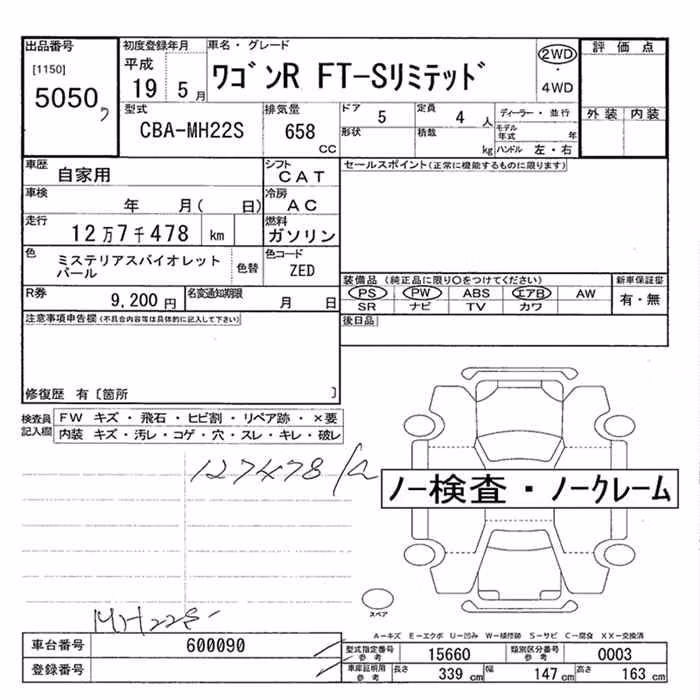 出品番号
[1150]
5050
初度登録年月
平成
19 5月
車名・グレード
ワゴンR FT-Sリミテッド
2WD
・
4WD
評価点
外装 内装
型式
CBA-MH22S
排気量
658
CC
ドア
5
定員
4 人
形状
積載
kg
ディーラー・並行
モデル
年式 年
ハンドル 左・右
車歴
自家用
シフト
CAT
セールスポイント(正常に機能するものに限ります)
車検
年 月( 日)
冷房
AC
走行
12万7千478 km
燃料
ガソリン
色
ミステリアスバイオレット
パール
色替
色コード
ZED
R券
9,200 円
名変通知期限
月 日
装備品(純正品に限り○をつけてください)
PS PW ABS エアB AW
SR ナビ TV カワ
新車保証書
有・無
後日品
注意事項申告欄(不具合内容等は具体的に記入して下さい)
修復歴 有〔箇所 〕
検査員
記入欄
FW キズ・飛石・ヒビ割・リペア跡・×要
内装 キズ・汚レ・コゲ・穴・スレ・キレ・破レ
127478
ノー検査・ノークレーム
スペア
MH22S-
A-キズ E-エクボ U-凹み W-補修跡 S-サビ C-腐食 XX-交換済
車台番号
600090
登録番号
型式指定番号
参考
15660
類別区分番号
参考
0003
車庫証明用
参考
長さ
339 cm
幅
147 cm
高さ
163 cm